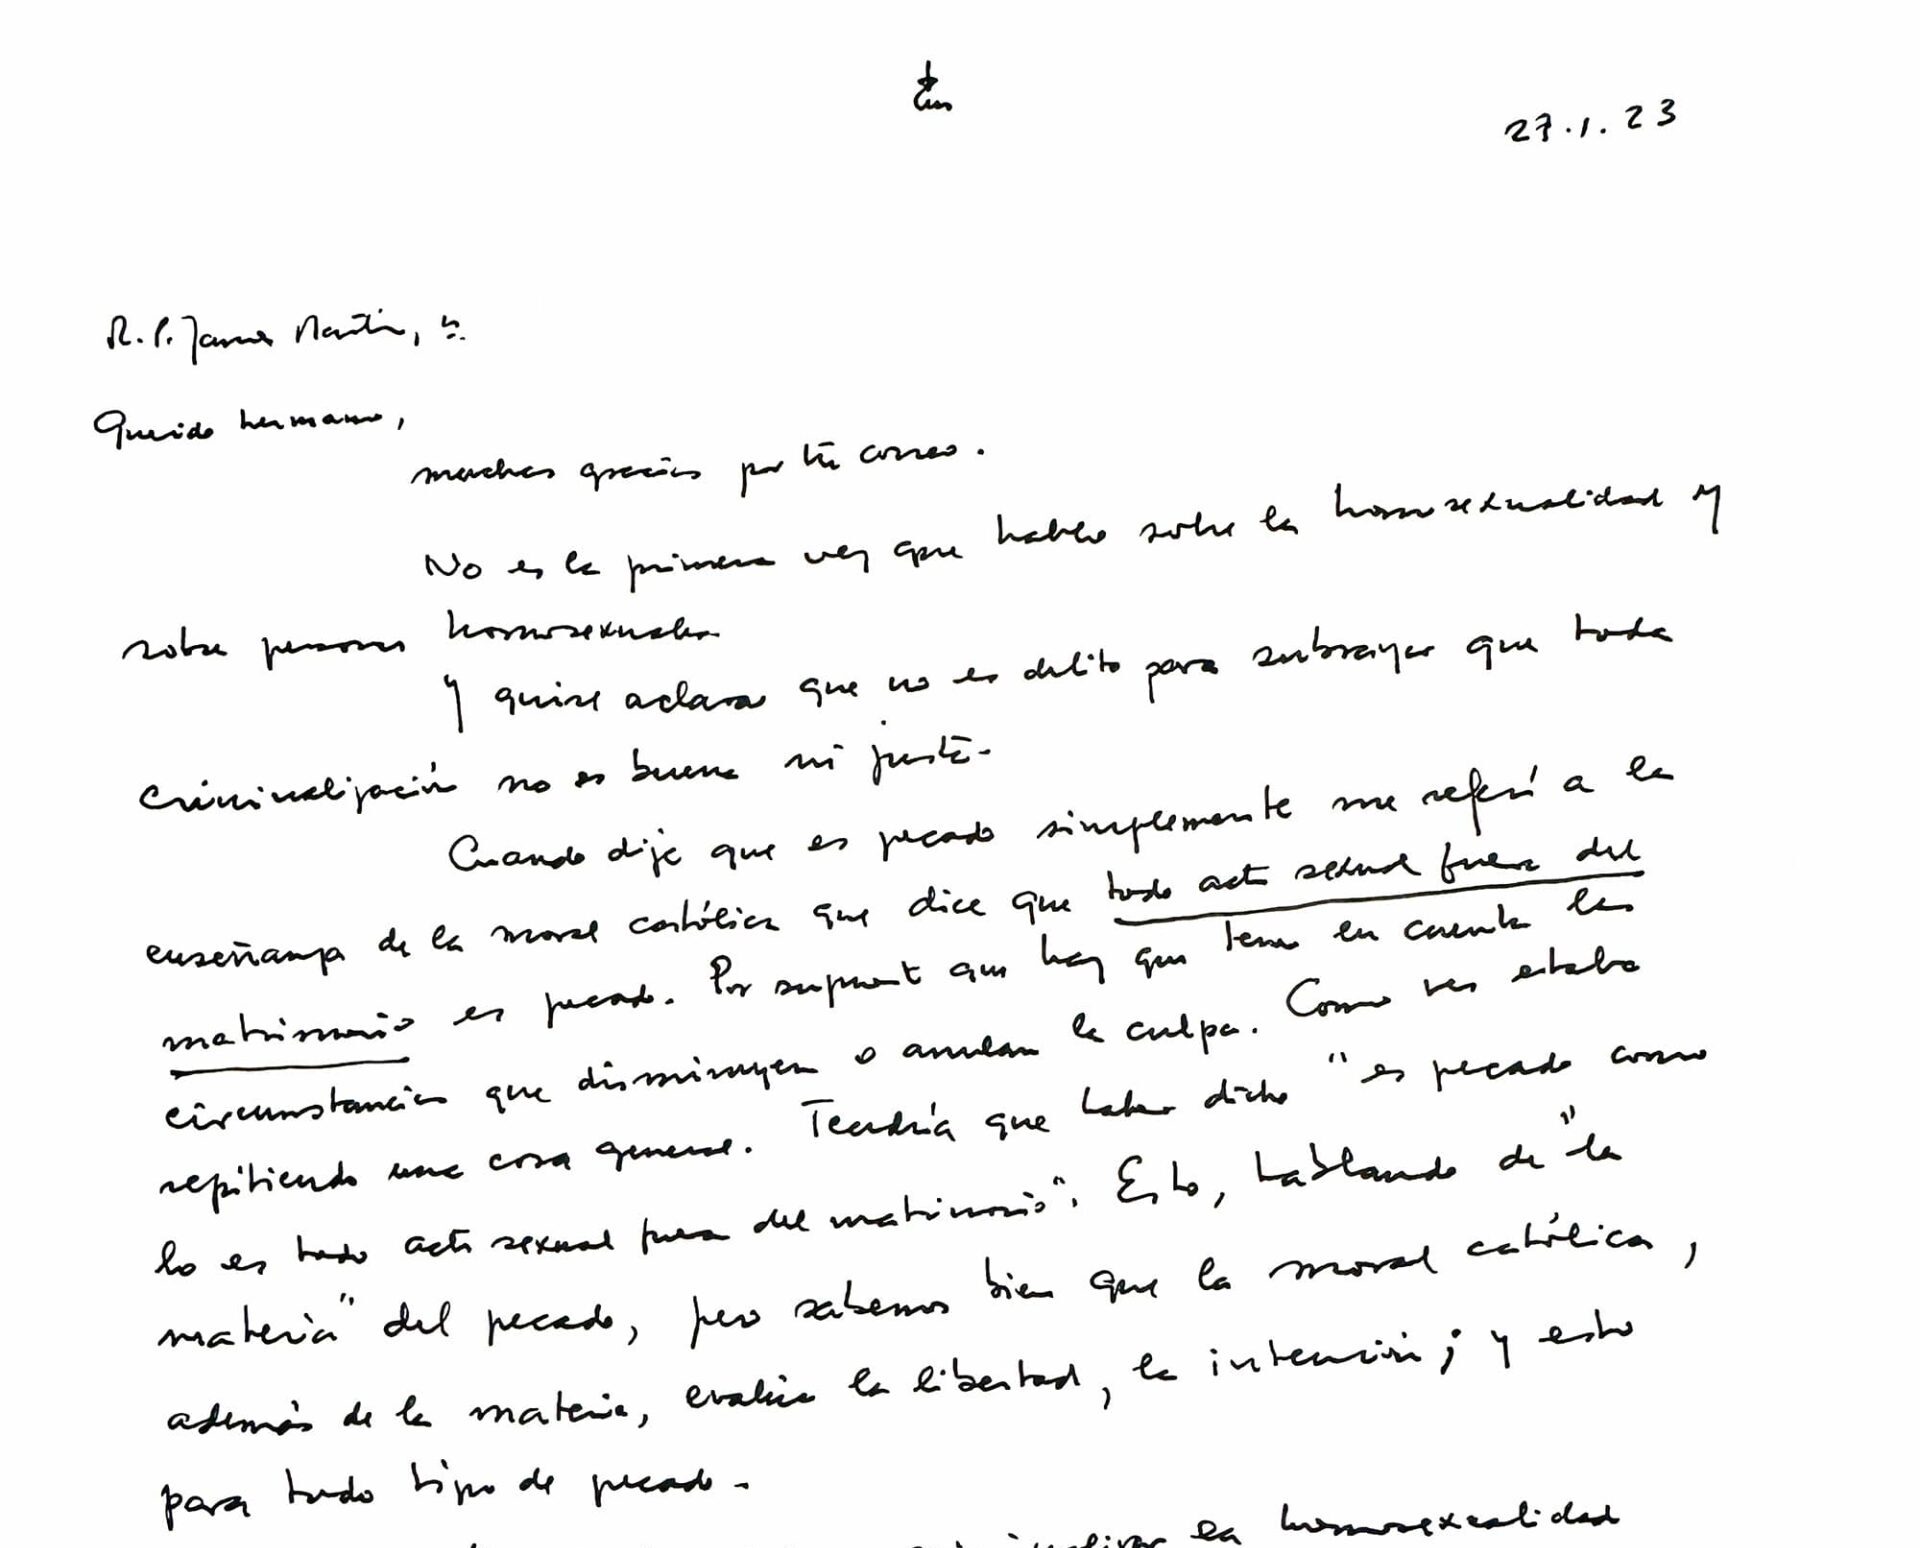 27.1.23
R.P. James Martin, sj.
Querido hermano,
muchas gracias por tu correo.
No es la primera vez que hablo sobre la homosexualidad y
sobre personas homosexuales
Y quise aclarar que no es delito para subrayar que toda
criminalización no es buena ni justa.
Cuando dije que es pecado simplemente me referí a la
enseñanza de la moral católica que dice que todo acto sexual fuera del
matrimonio es pecado. Por supuesto que hay que tener en cuenta las
circunstancias que disminuyen o anulan la culpa. Como ves estaba
repitiendo una cosa general. Tendría que haber dicho "es pecado como
lo es todo acto sexual fuera del matrimonio". Esto, hablando de "la
materia" del pecado, pero sabemos bien que la moral católica,
además de la materia, evalúa la libertad, la intención; y esto
para todo tipo de pecado.
la homosexualidad